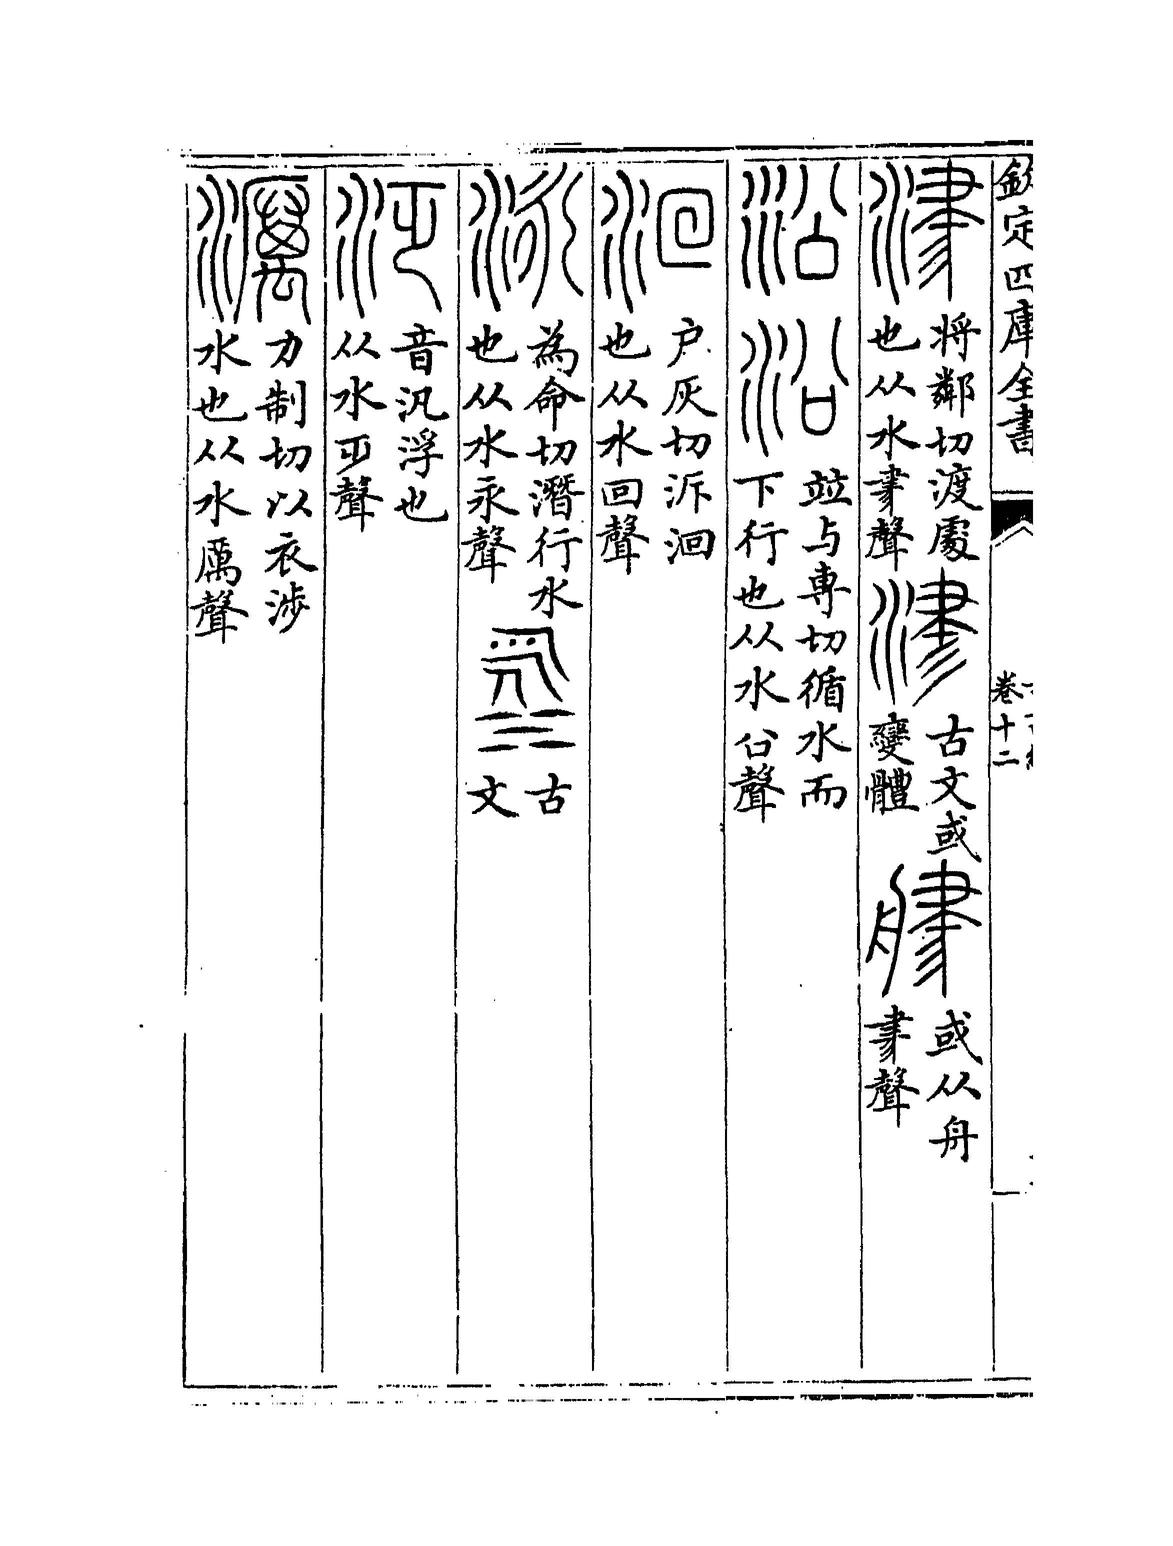 欽定四庫全書
卷十二
津 將鄰切渡處也从水𦘔聲 津 古文或變體 𦨈 或从舟𦘔聲
沿 㳂 竝与專切循水而下行也从水㕣聲
洄 户灰切泝洄也从水回聲
泳 為命切潛行水也从水永聲 古文
音汎浮也从水聲
濿 力制切以衣涉水也从水厲聲